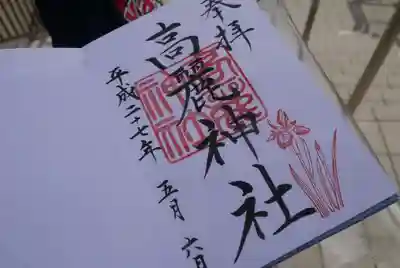 奉拝
高麗神社
平成二十七年
五月
六月